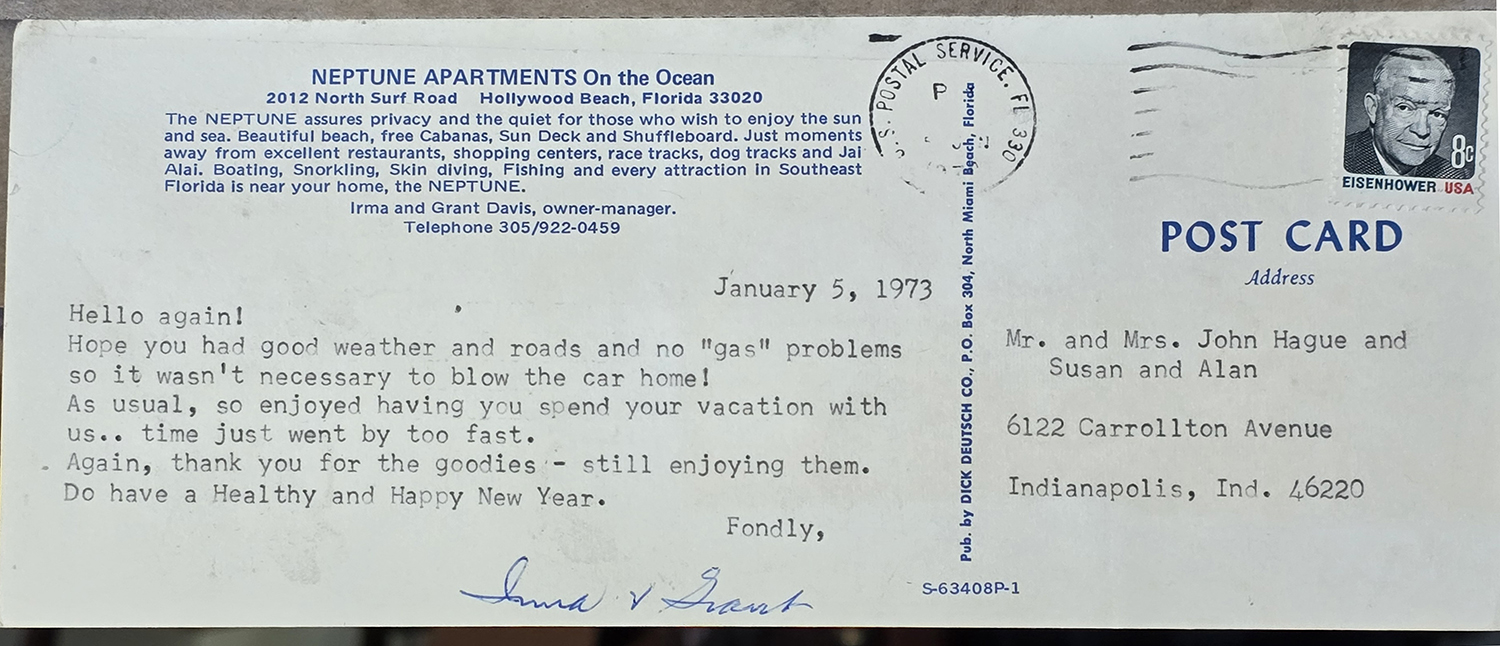 NEPTUNE APARTMENTS On the Ocean
2012 North Surf Road Hollywood Beach, Florida 33020
The NEPTUNE assures privacy and the quiet for those who wish to enjoy the sun
and sea. Beautiful beach, free Cabanas, Sun Deck and Shuffleboard. Just moments
away from excellent restaurants, shopping centers, race tracks, dog tracks and Jai
Alai. Boating, Snorkling, Skin diving, Fishing and every attraction in Southeast
Florida is near your home, the NEPTUNE.
Irma and Grant Davis, owner-manager.
Telephone 305/922-0459
January 5, 1973
Hello again!
Hope you had good weather and roads and no "gas" problems
so it wasn't necessary to blow the car home!
As usual, so enjoyed having you spend your vacation with
us.. time just went by too fast.
Again, thank you for the goodies - still enjoying them.
Do have a Healthy and Happy New Year.
Fondly,
Irma & Grant
Pub. by DICK DEUTSCH CO., P.O. Box 304, North Miami Beach, Florida
S-63408P-1
U.S. POSTAL SERVICE, FL 330
P
8c
EISENHOWER USA
POST CARD
Address
Mr. and Mrs. John Hague and
Susan and Alan
6122 Carrollton Avenue
Indianapolis, Ind. 46220